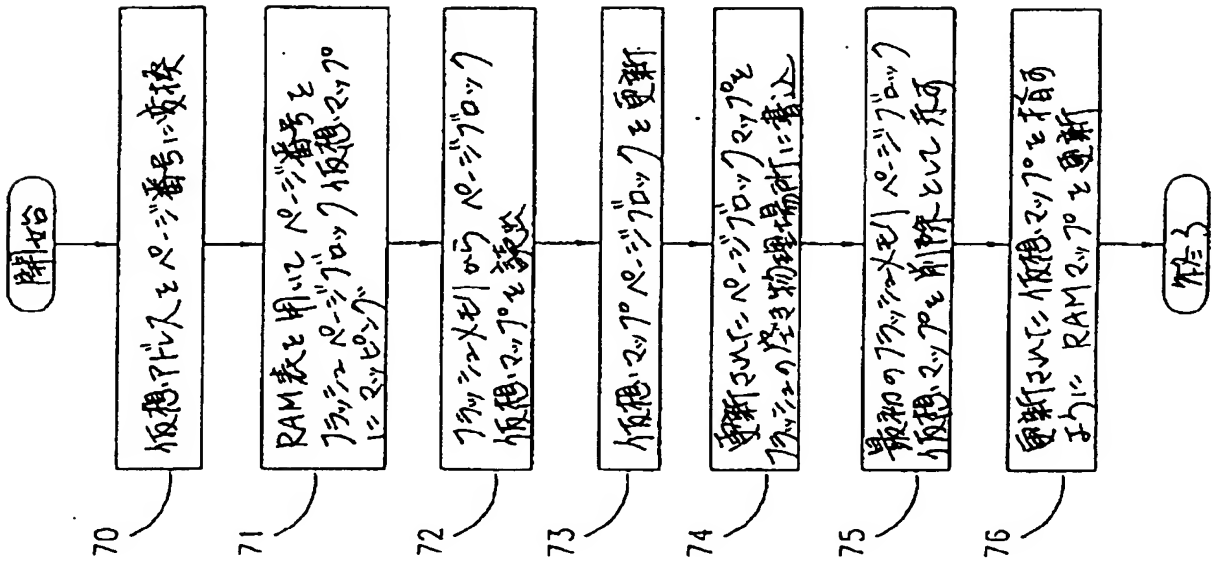 開始
70
仮想アドレスをページ番号に変換
71
RAM表を用いて ページ番号を
フラッシュ ページブロック 仮想マップ
にマッピング
72
フラッシュメモリから ページブロック
仮想マップを読込
73
仮想マップ ページブロックを更新
74
更新された ページブロック マップを
フラッシュの空き物理場所に書込
75
最初のフラッシュメモリ ページブロック
仮想マップを削除として示す
76
更新された仮想マップを指す
ように RAMマップを更新
終る